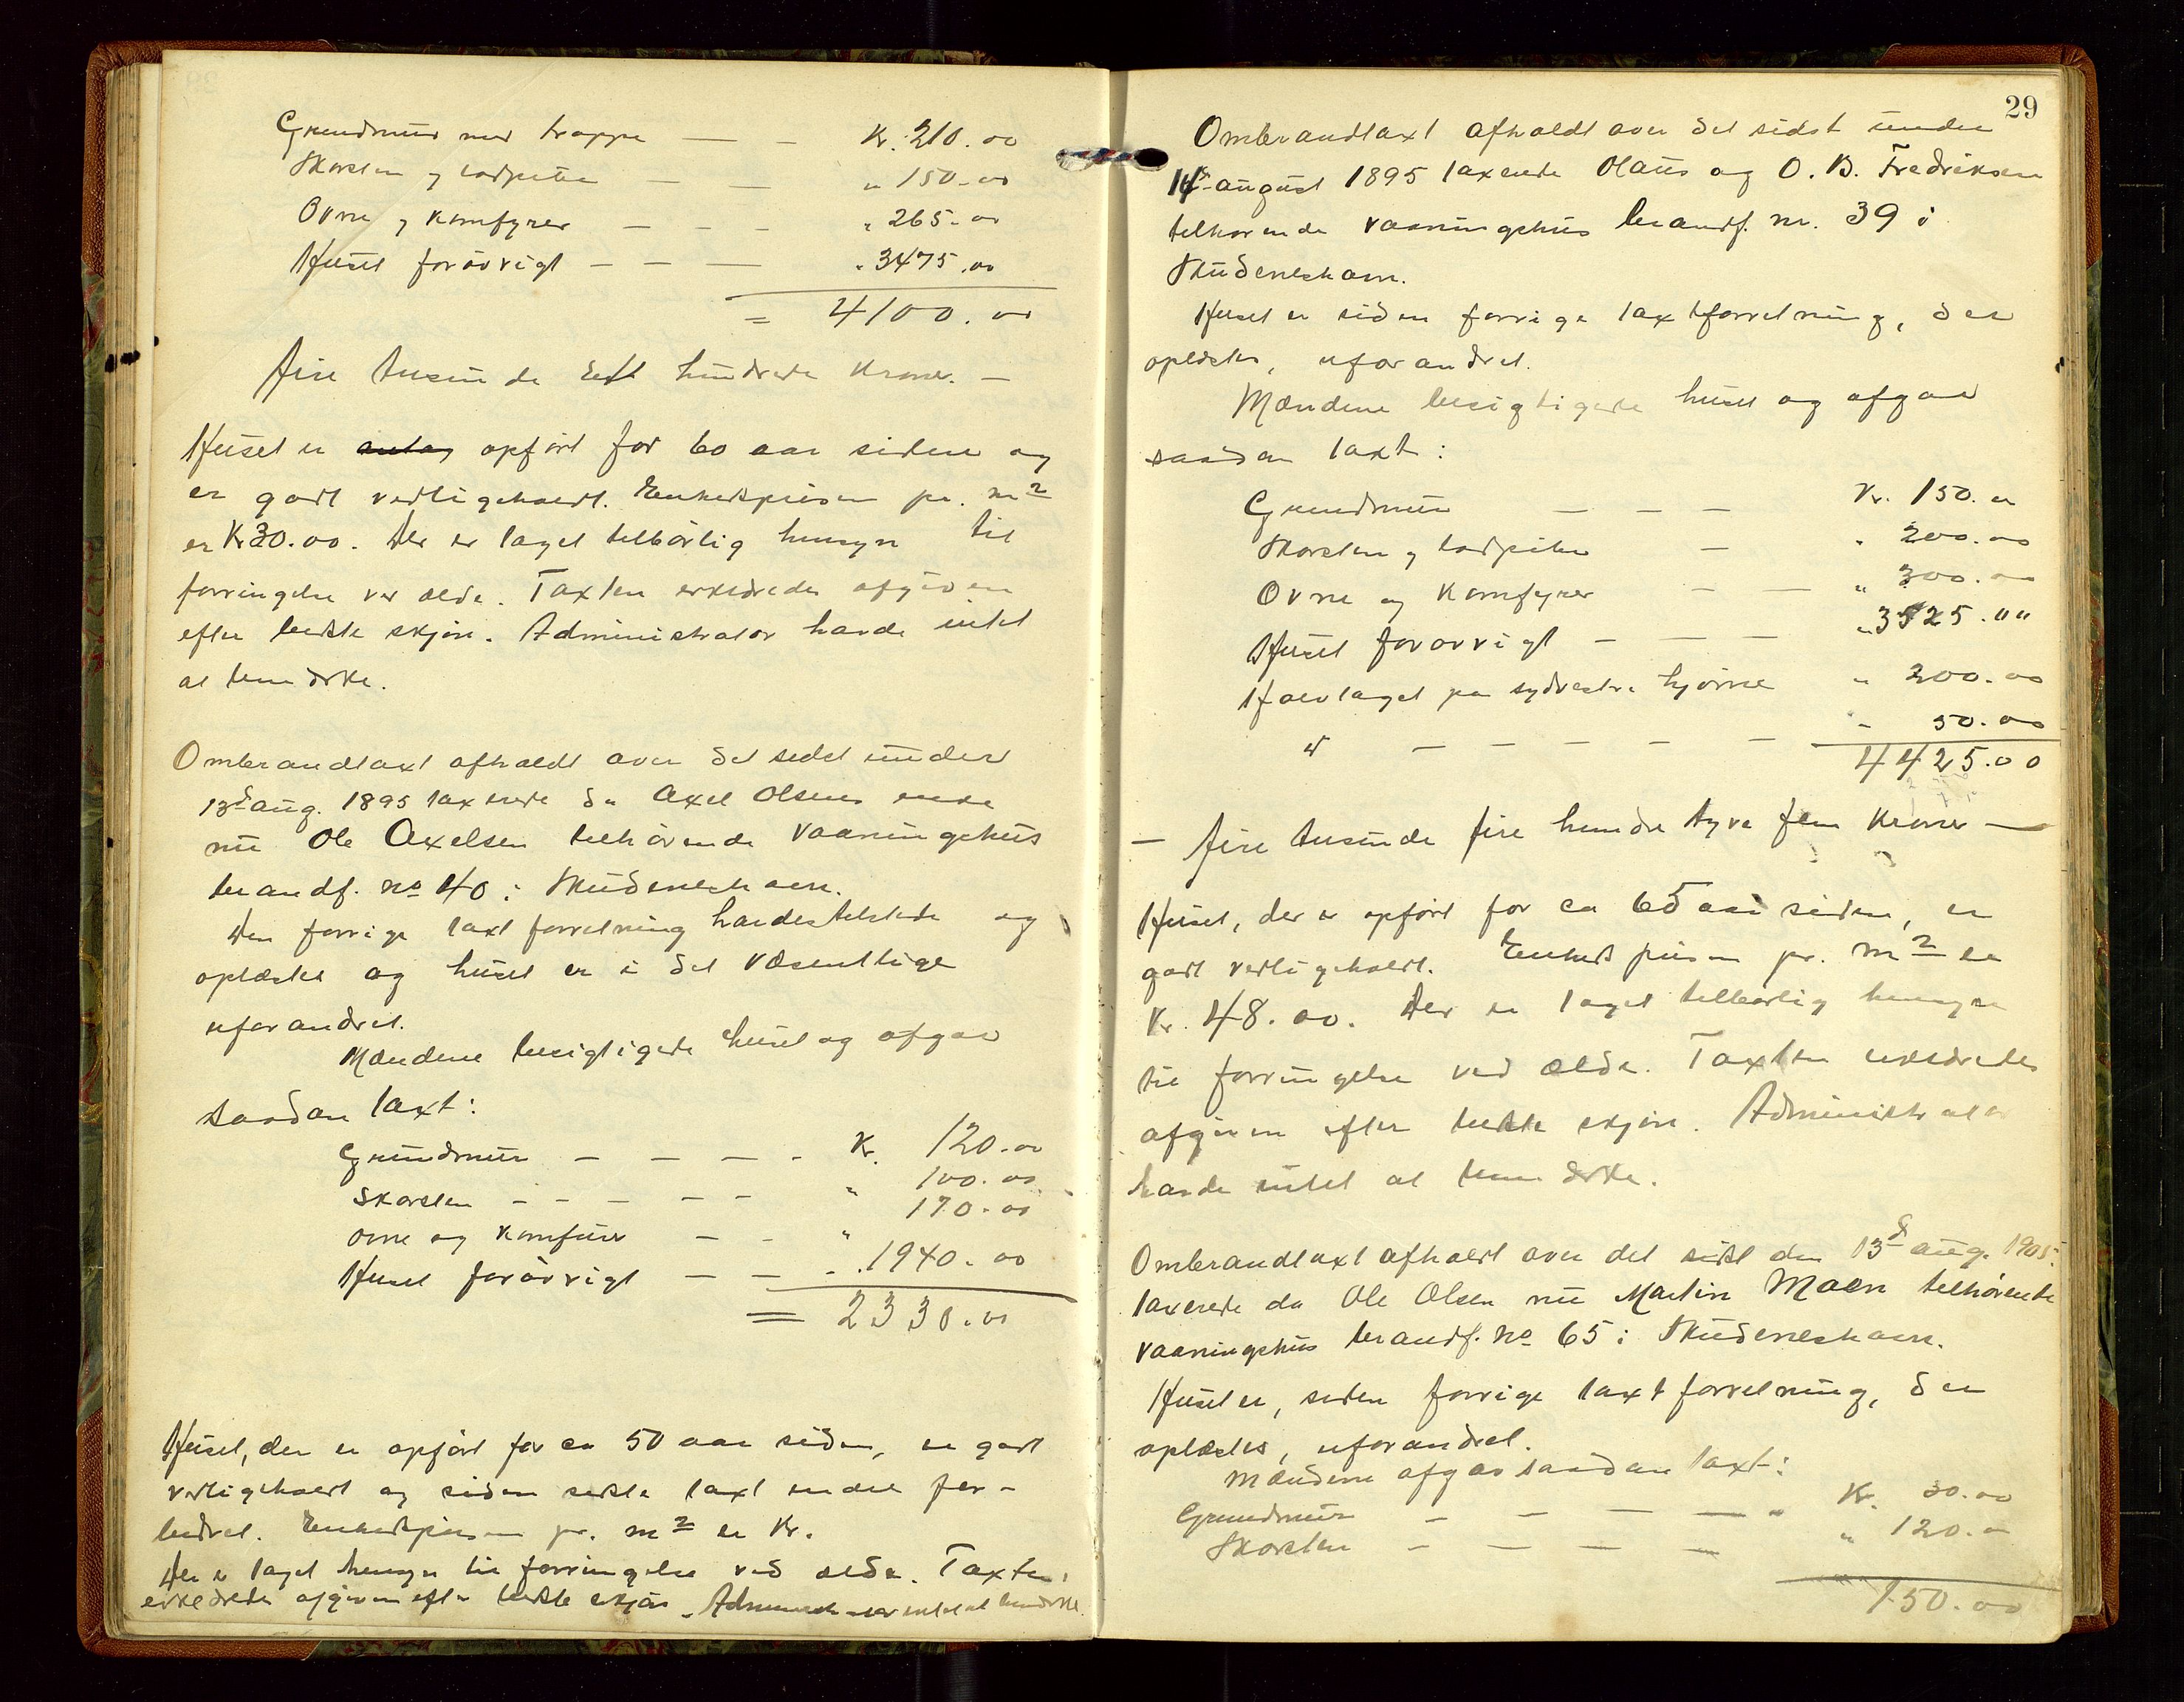 Grundmur med trappe — - Kr. 210.00
Skorsten og lodpibe — — „ 150.00
Ovne og Komfyrer — — — „ 265.00
Huset forövrigt — — — „ 3475.00
= 4100.00
fire tusinde Ett hundrede Kroner. —
Huset er antag opfört for 60 aar siden og
er godt vedligeholdt. Enhedsprisen pr. m²
er Kr 30.00. Der er taget tilbörlig hensyn til
forringelse ved ælde. Taxten erklæredes afgiven
efter bedste skjön. Administrator havde intet
at bemærke.
Ombrandtaxt afholdt over det sidst under
13d aug. 1895 taxerede da Axel Olsens enke
nu Ole Axelsen tilhörende Vaaningshus
brandf. no 40 i Skudeneshavn.
Den forrige taxtforretning havdes tilstede og
oplæstes og huset er i det væsentlige
uforandret.
Mændene besigtigede huset og afgav
saadan taxt:
Grundmur — — — - Kr. 120.00
Skorsten - - - - - „ 100.00
ovne og Komfurer — - „ 170.00
Huset forövrigt — — - „ 1940.00
= 2330.00
Huset, der er opfört for ca 50 aar siden, er godt
vedligeholdt og siden sidste taxt endel for-
bedret. Enhedsprisen pr. m² er Kr.
Der er taget hensyn til forringelse ved ælde. Taxten
erklæredes afgiven efter bedste skjön. Administrator intet at bemærke.
29
Ombrandtaxt afholdt over det sidst under
14d august 1895 taxerede Olaus og O. B. Fredriksen
tilhørende vaaningshus brandf. nr. 39 i
Skudeneshavn.
Huset er siden forrige taxtforretning, der
oplæstes, uforandret.
Mændene besigtigede huset og afgav
saadan taxt:
Grundmur — — — Kr. 150.00
Skorsten og lodpiber — „ 200.00
Ovne og Komfyrer — — „ 300.00
Huset forovrigt — — — „ 3525.""
Halvtaget paa sydvestre hjörne „ 200.00
" — — — — — „ 50.00
4425.00
— fire tusinde fire hundre tyve fem Kroner —
Huset, der er opfört for ca 65 aar siden, er
godt vedligeholdt. Enhedsprisen pr. m² er
Kr. 48.00. Der er taget tilbørlig hensyn
til forringelse ved ælde. Taxten erklæredes
afgiven efter bedste skjön. Administrator
havde intet at bemærke.
Ombrandtaxt afholdt over det sidst den 13d aug. 1905
taxerede da Ole Olsen nu Martin Maen tilhörende
vaaningshus brandf. no 65 i Skudeneshavn.
Huset er, siden forrige taxtforretning, der
oplæstes, uforandret.
Mændene afgav saadan taxt:
Grundmur - — — — „ Kr. 30.00
Skorsten - — — — „ 120.00
150.00